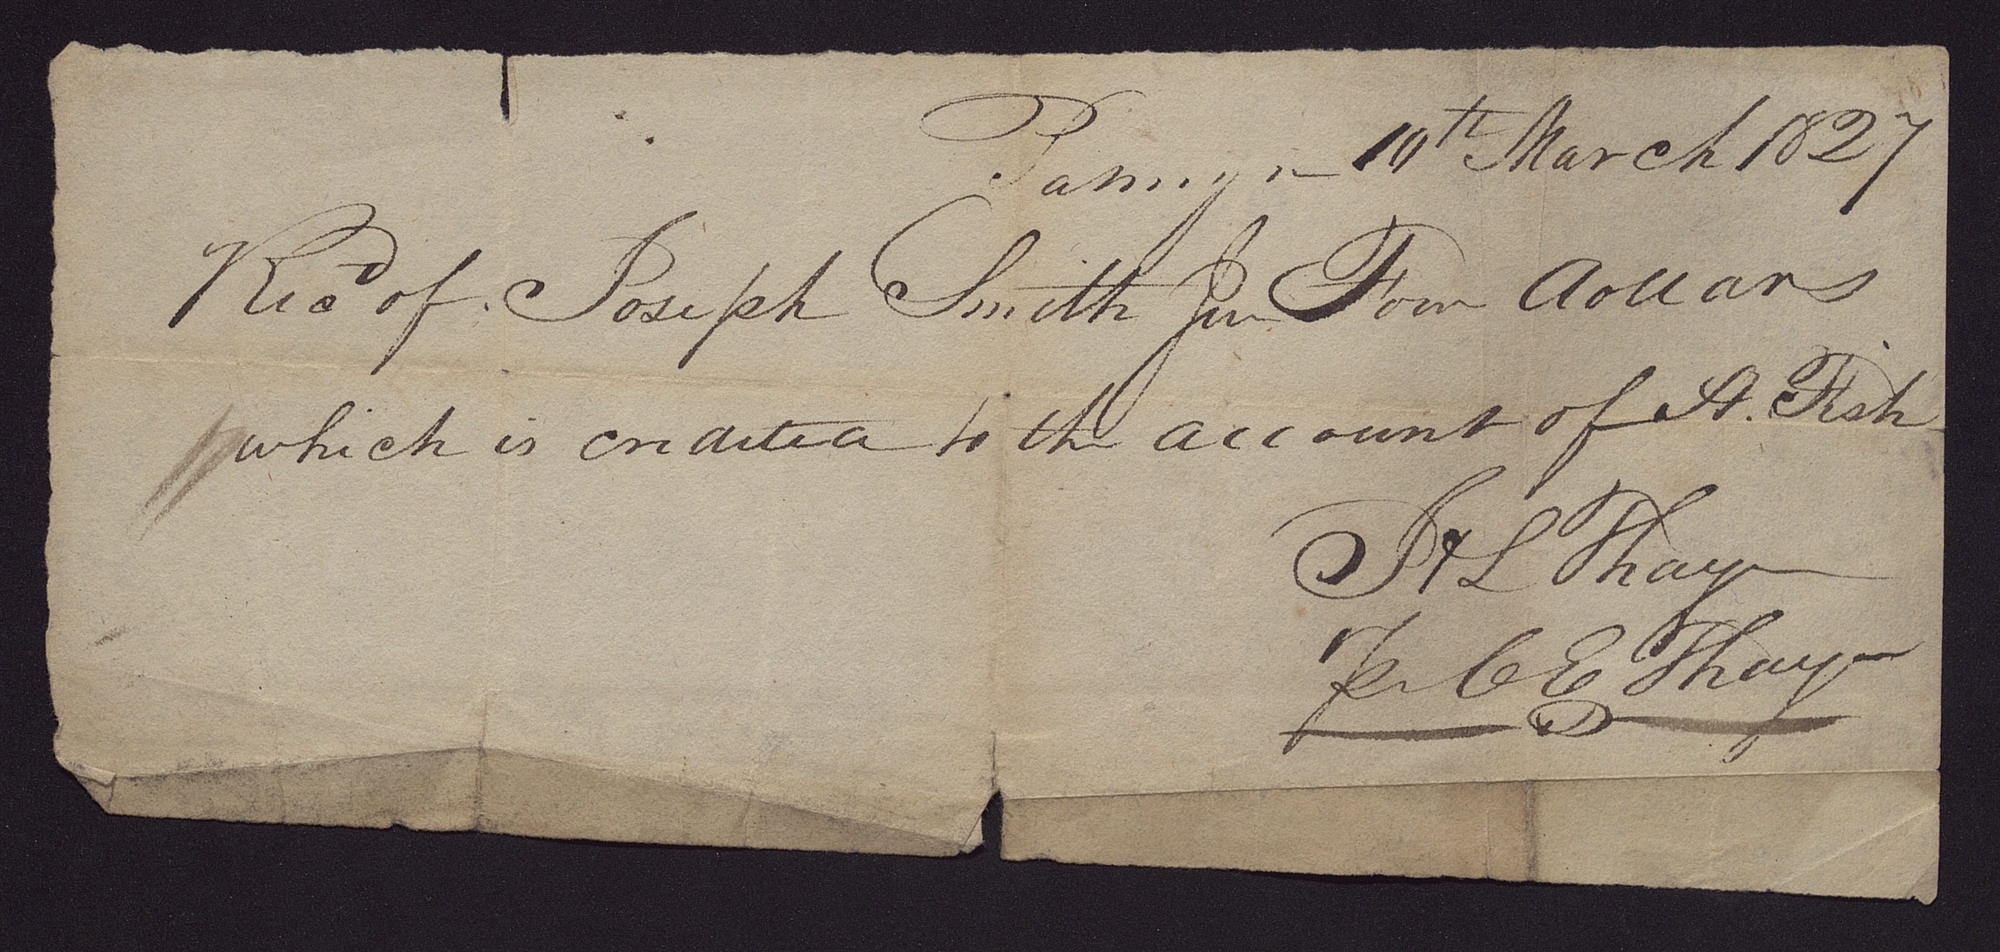 Palmyra 10th March 1827
Recd of Joseph Smith Jun Four dollars
which is credited to the account of A. Fish
J & L Thayer
Pr C E Thayer